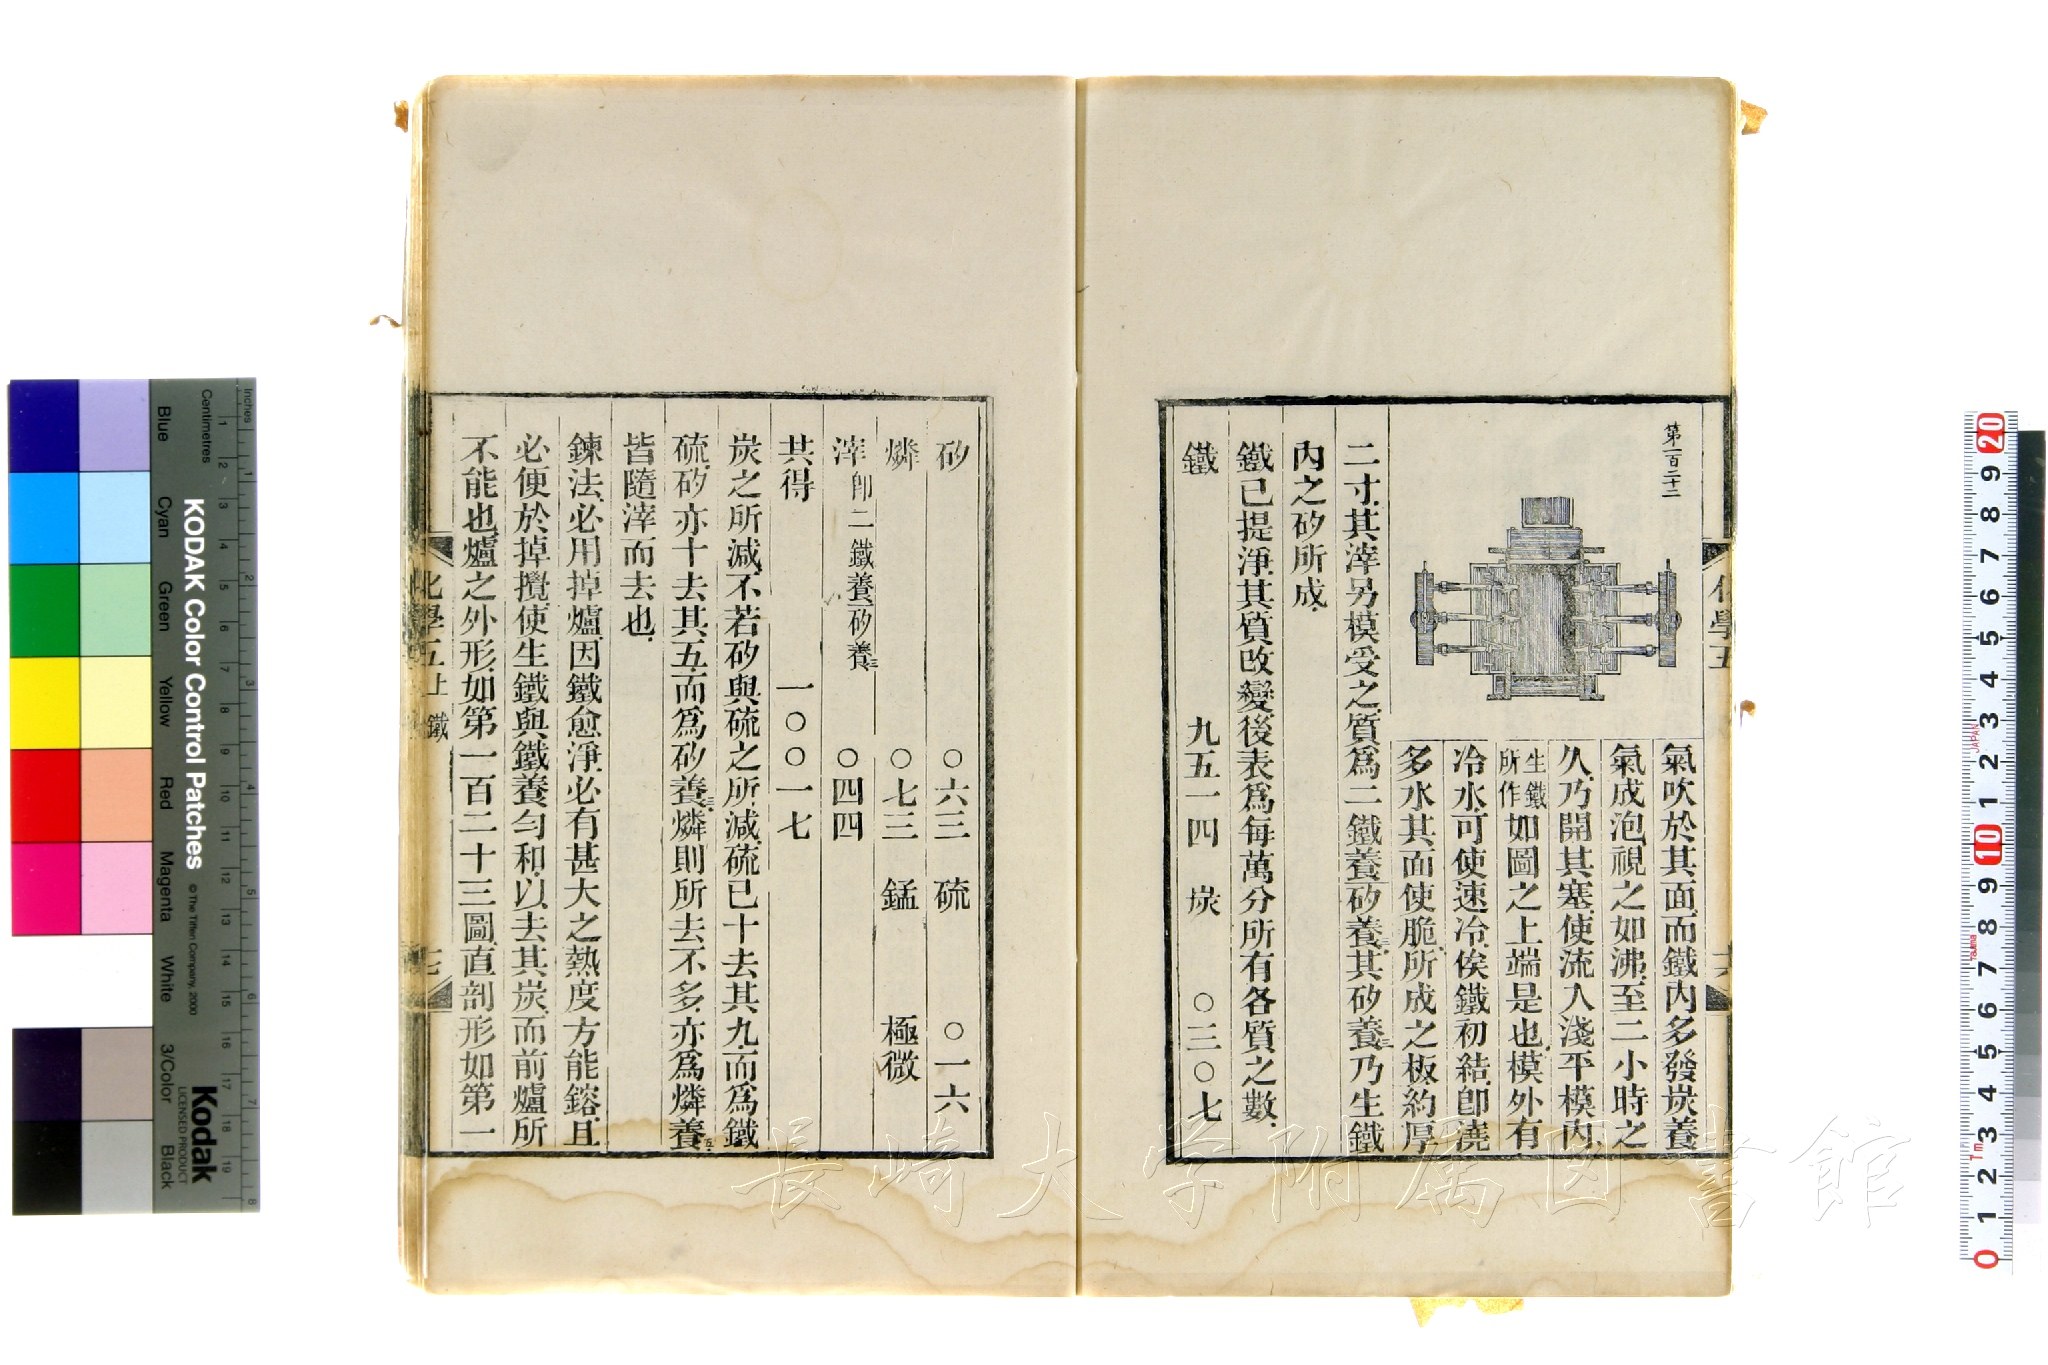 第一百二十二
氣吹於其面而鐵內多發炭養
氣成泡視之如沸至二小時之
久乃開其塞使流入淺平模內
生鐵所作如圖之上端是也模外有
冷水可使速冷俟鐵初結卽澆
多水其面使脆所成之板約厚
二寸其滓另模受之質爲二鐵養矽養三其矽養三乃生鐵
內之矽所成
鐵已提淨其質改變後表爲每萬分所有各質之數
鐵 九五一四 炭 ○三○七
化學五
矽 ○六三 硫 ○一六
燐 ○七三 錳 極微
滓卽二鐵養矽養三 ○四四
共得 一○○一七
炭之所減不若矽與硫之所減硫已十去其九而爲鐵
硫矽亦十去其五而爲矽養三燐則所去不多亦爲燐養五
皆隨滓而去也
鍊法必用掉爐因鐵愈淨必有甚大之熱度方能鎔且
必便於掉攪使生鐵與鐵養勻和以去其炭而前爐所
不能也爐之外形如第一百二十三圖直剖形如第一
化學五上 鐵
長崎大学附属図書館
KODAK Color Control Patches
© The Tiffen Company, 2000
Kodak
LICENSED PRODUCT
Inches
Centimetres
Blue
Cyan
Green
Yellow
Red
Magenta
White
3/Color
Black
1 2 3 4 5 6 7 8 9 10 11 12 13 14 15 16 17 18 19
1 2 3 4 5 6 7 8
20 9 8 7 6 5 4 3 2 1 10 9 8 7 6 5 4 3 2 1 0
JAPAN
7m